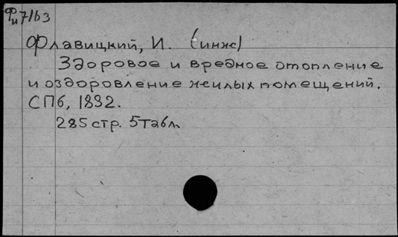 Фи 7/63
Флавицкий, И. (инж)
Здоровое и вредное отопление
и оздоровление жилых помещений.
СПб, 1892.
285 стр. 5 табл.